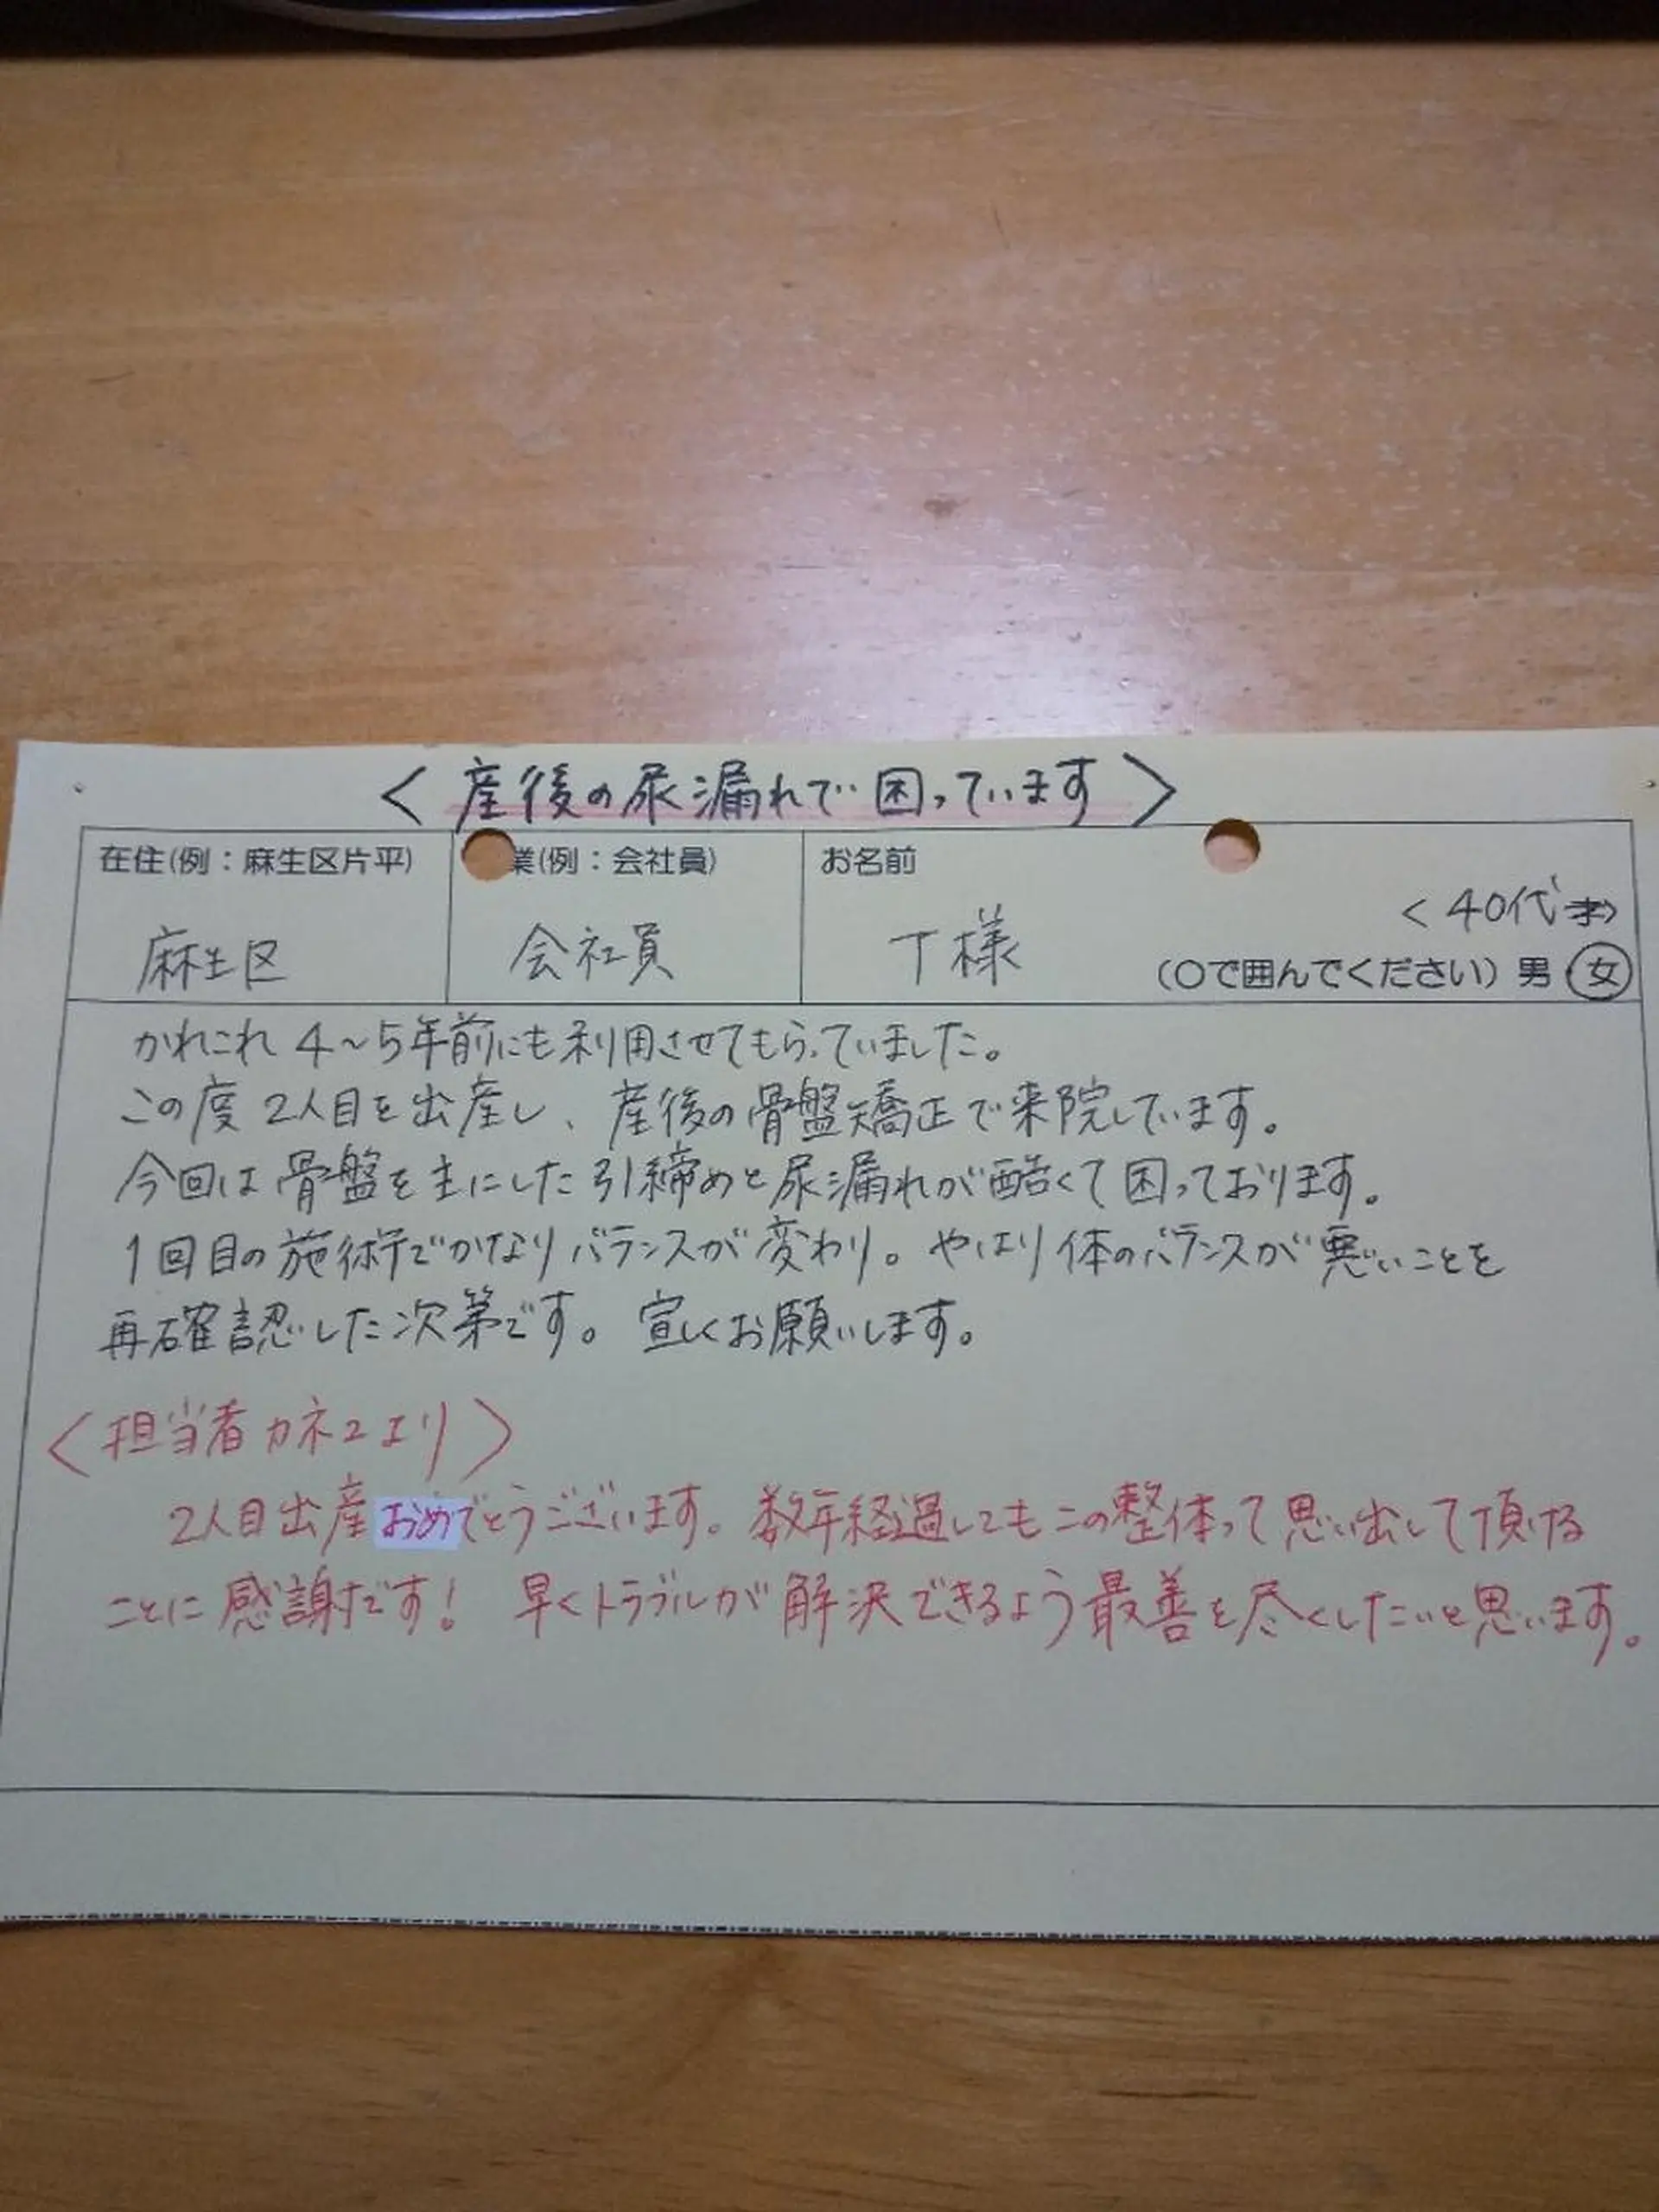 ＜産後の尿漏れで困っています＞
在住(例：麻生区片平)
業(例：会社員)
お名前
＜40代
麻生区
会社員
T様
(○で囲んでください) 男・女
かれこれ4～5年前にも利用させてもらっていました。
この度2人目を出産し、産後の骨盤矯正で来院しています。
今回は骨盤を主にした引締めと尿漏れが酷くて困っております。
1回目の施術でかなりバランスが変わり。やはり体のバランスが悪いことを
再確認した次第です。宜しくお願いします。
＜担当者カネコより＞
2人目出産おめでとうございます。数年経過してもこの整体って思い出して頂ける
ことに感謝です！早くトラブルが解決できるよう最善を尽くしたいと思います。